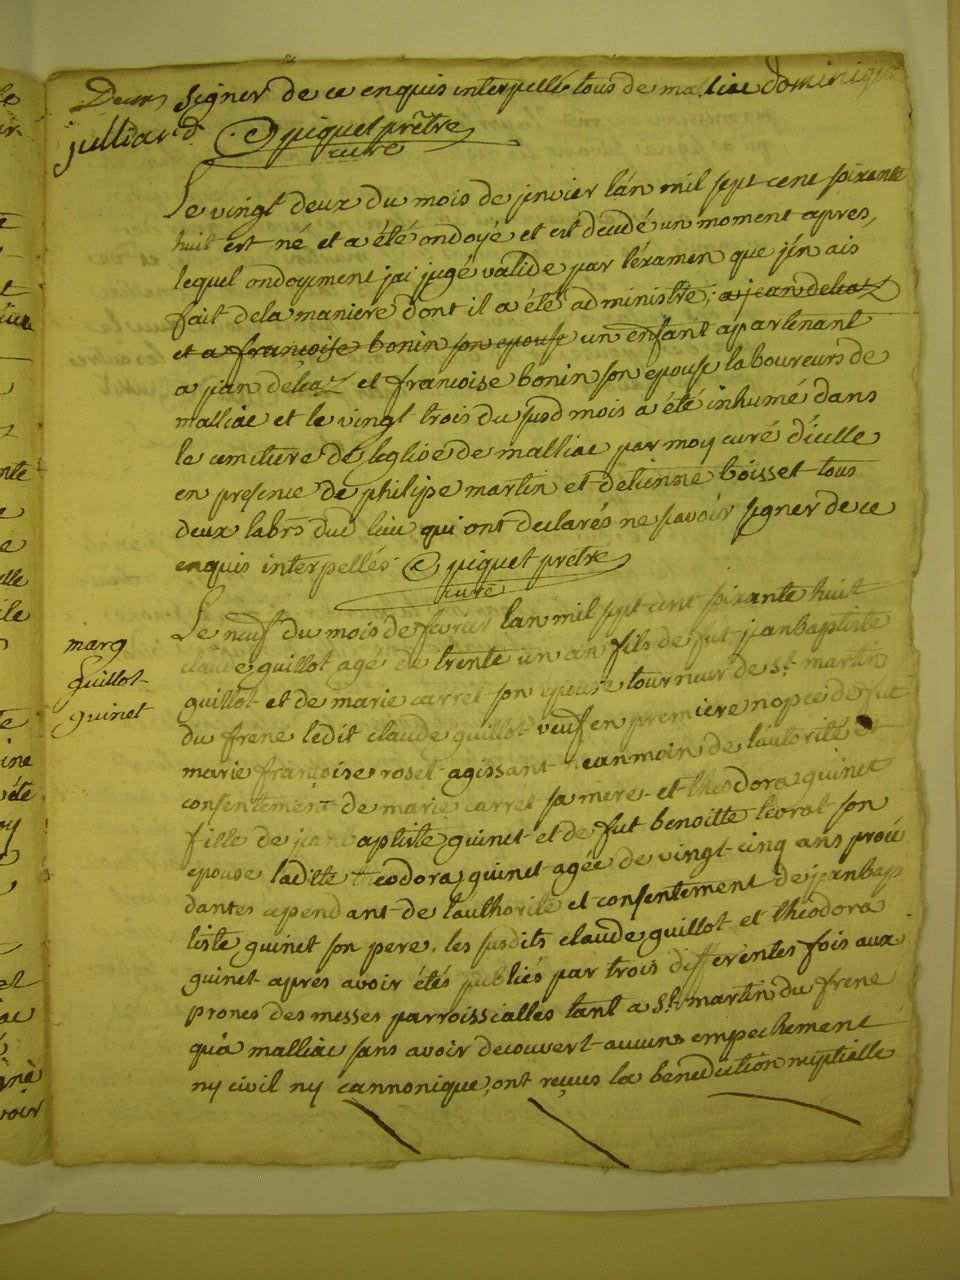 Deux signer de ce enquis interpellé tous de malliac dominique
julliard
C piquet prêtre
curé
Le vingt deux du mois de jenvier lan mil sept cent soixante
huit est né et a été ondoyé et est décédé un moment apres,
lequel ondoyment jai jugé valide par léxamen que jén ais
fait dela maniere dont il a été administré; a jean delcaz
et a françoise bonin son epouse un enfant apartenant
a jean delcaz et francoise bonin son epouse laboureurs de
malliac et le vingt trois du susd mois a été inhumé dans
le cimitiere de leglise de malliac par moy curé dicelle
en presence de philipe martin et détienne boisset tous
deux labrs dud lieu qui ont declarés ne savoir signer de ce
enquis interpellés C piquet pretre
curé
Le neuf du mois de fevrier lan mil sept cent soixante huit
claude guillot agé de trente un an fils de fut jean baptiste
marg
guillot et de marie carret son epouse tourneur de st martin
Guillot
du frene ledit claude guillot veuf en premiere nopce de fut
guinet
marie françoise roset agissant neanmoin de lautorité et
consentement de marie carret sa mere et théodora guinet
fille de jean baptiste guinet et de fut benoitte levrat son
epouse ladite théodora guinet agée de vingt cinq ans
dantes cependant de lauthorité et consentement de jean bap
tiste guinet son pere. les susdits claude guillot et théodora
guinet apres avoir étés publiés par trois differentes fois aux
prones des messes parroissialles tant a st martin du frene
quà malliac sans avoir decouvert aucuns empechement
ny civil ny cannonique, ont reçus la benediction nuptialle